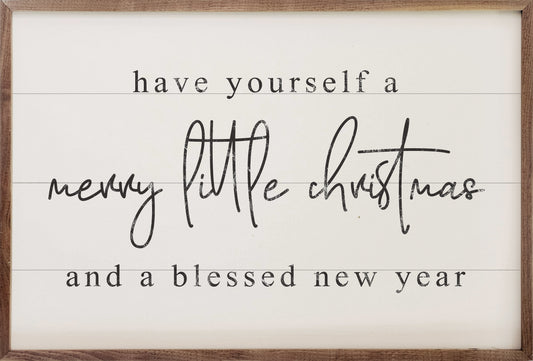 have yourself a
merry little christmas
and a blessed new year